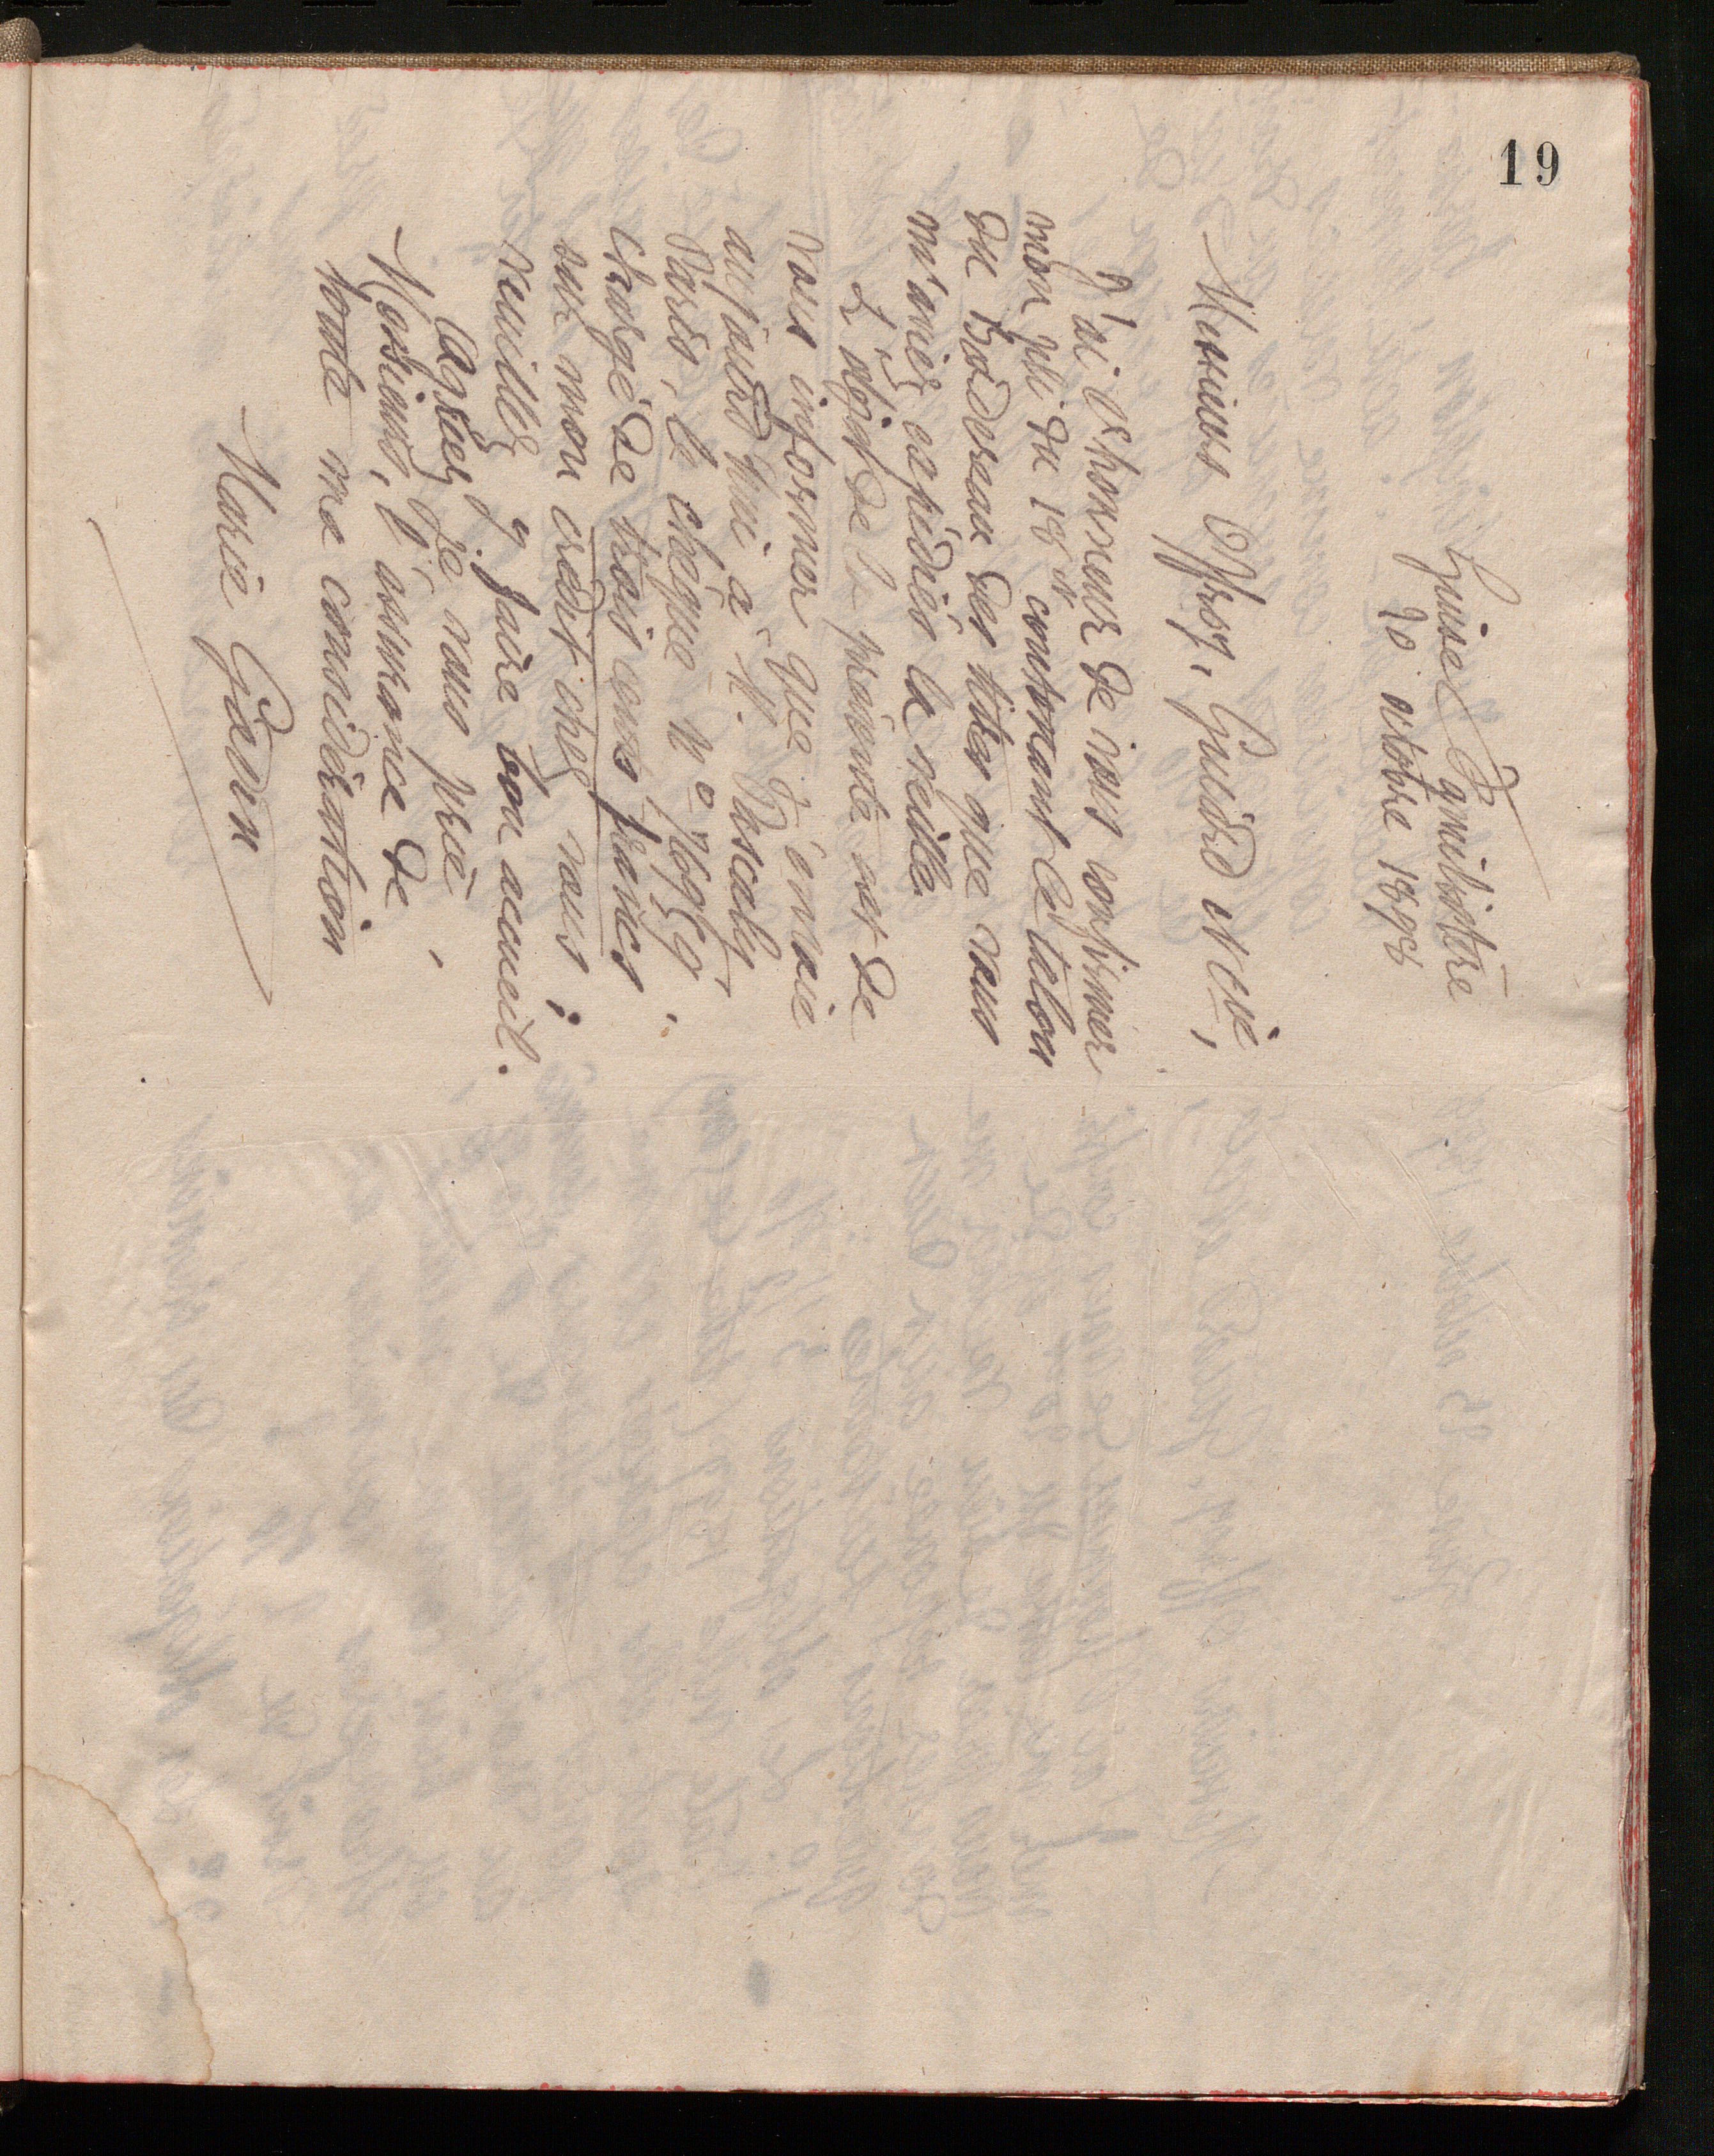 19
Guise Familistère
20 octobre 1898
Messieurs Offroy, Guiard et Cie,
J'ai l'honneur de vous confirmer
mon pli du 18 ct contenant le talon
du Bordereau des titres que vous
m'aviez expédiés la veille.
L'objet de la présente est de
vous informer que j'envoie
aujourd'hui à M. Pascaly,
Paris, le chèque No
chargé de trois cents francs
sur mon crédit chez vous;
veuillez y faire bon accueil.
Agréez, je vous prie,
Messieurs, l'assurance de
toute ma considération
Marie Godin